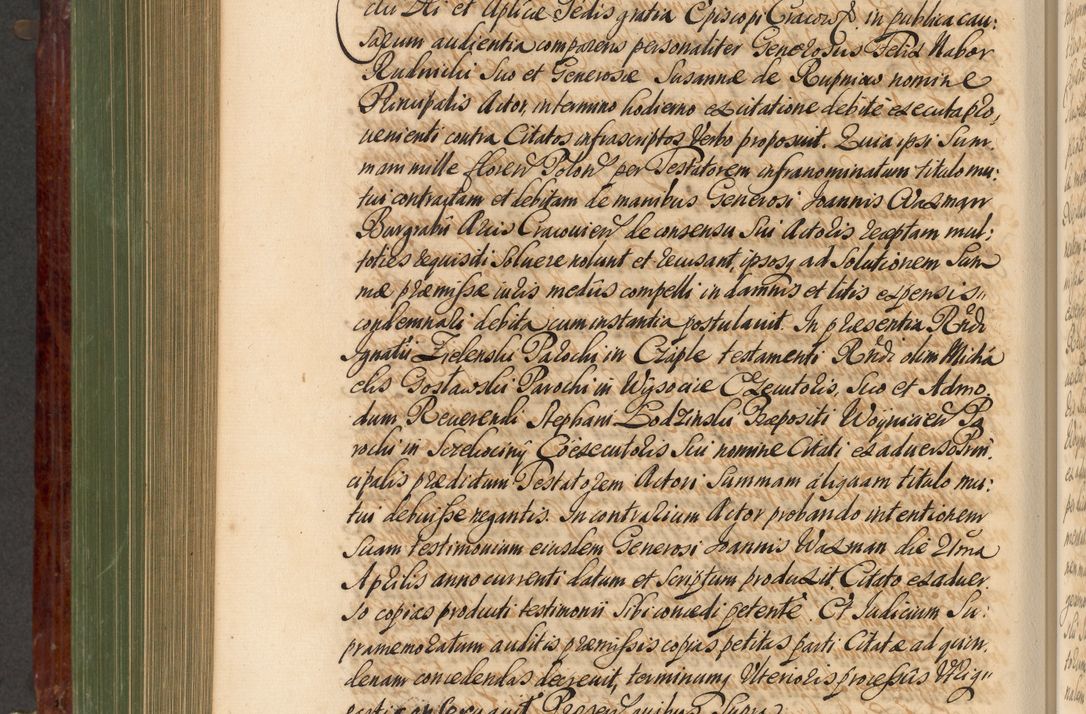 cu Dei et Aplicæ Sedis gratia Episcopi Cracow. in publica cau:
sarum audientia comparens personaliter Generosus Felix Nabor
Rudnicki Suo et Generosæ Susannæ de Rupniow nomine
Principalis Actor, in termino hodierno ex citatione debite executa pro,
uenienti contra Citatos infrascriptos Verbo proposuit. Quia ipsi Sum,
mam mille floren Polon per Testatorem infranominatum titulo mu:
tui contractam et debitam de manibus Generosi Joannis Waxman
Burgrabii Arcis Cracouien de consensu Sui Actoris receptam mul,
toties requisiti Soluere nolunt et recusant, ipsosq ad Solutionem Sum
mæ præmissæ iuris mediis compelli in damnis et litis expensis
condemnari debita cum instantia postulauit. In præsentia Rndi
Ignatii Zielenski Parochi in Czaple testamenti Rndi olim Micha
elis Gosławski Parochi in Wysocice Executoris, Suo et Admo
dum Reuerendi Stephani Lodzinski Præpositi Woynicien Pa
rochi in Szrekociny Coexecutoris Sui nomine Citati ex aduerso Prin,
cipalis prædictum Testatorem Actori Summam aliquam titulo mu:
tui debuisse negantis. In contrarium Actor probando intentionem
Suam testimonium eiusdem Generosi Joannis Waxman die 2tma
Aprilis anno currenti datum et Scriptum produxit. Citato ex aduer
so copias producti testimonii Sibi concedi petente. Et Judicium Su:
pramemoratum auditis præmissis copias petitas parti Citatæ ad quin,
denam concedendas decreuit, terminumq Vterioris processus
partis conseruauit Præsen quibus Supra